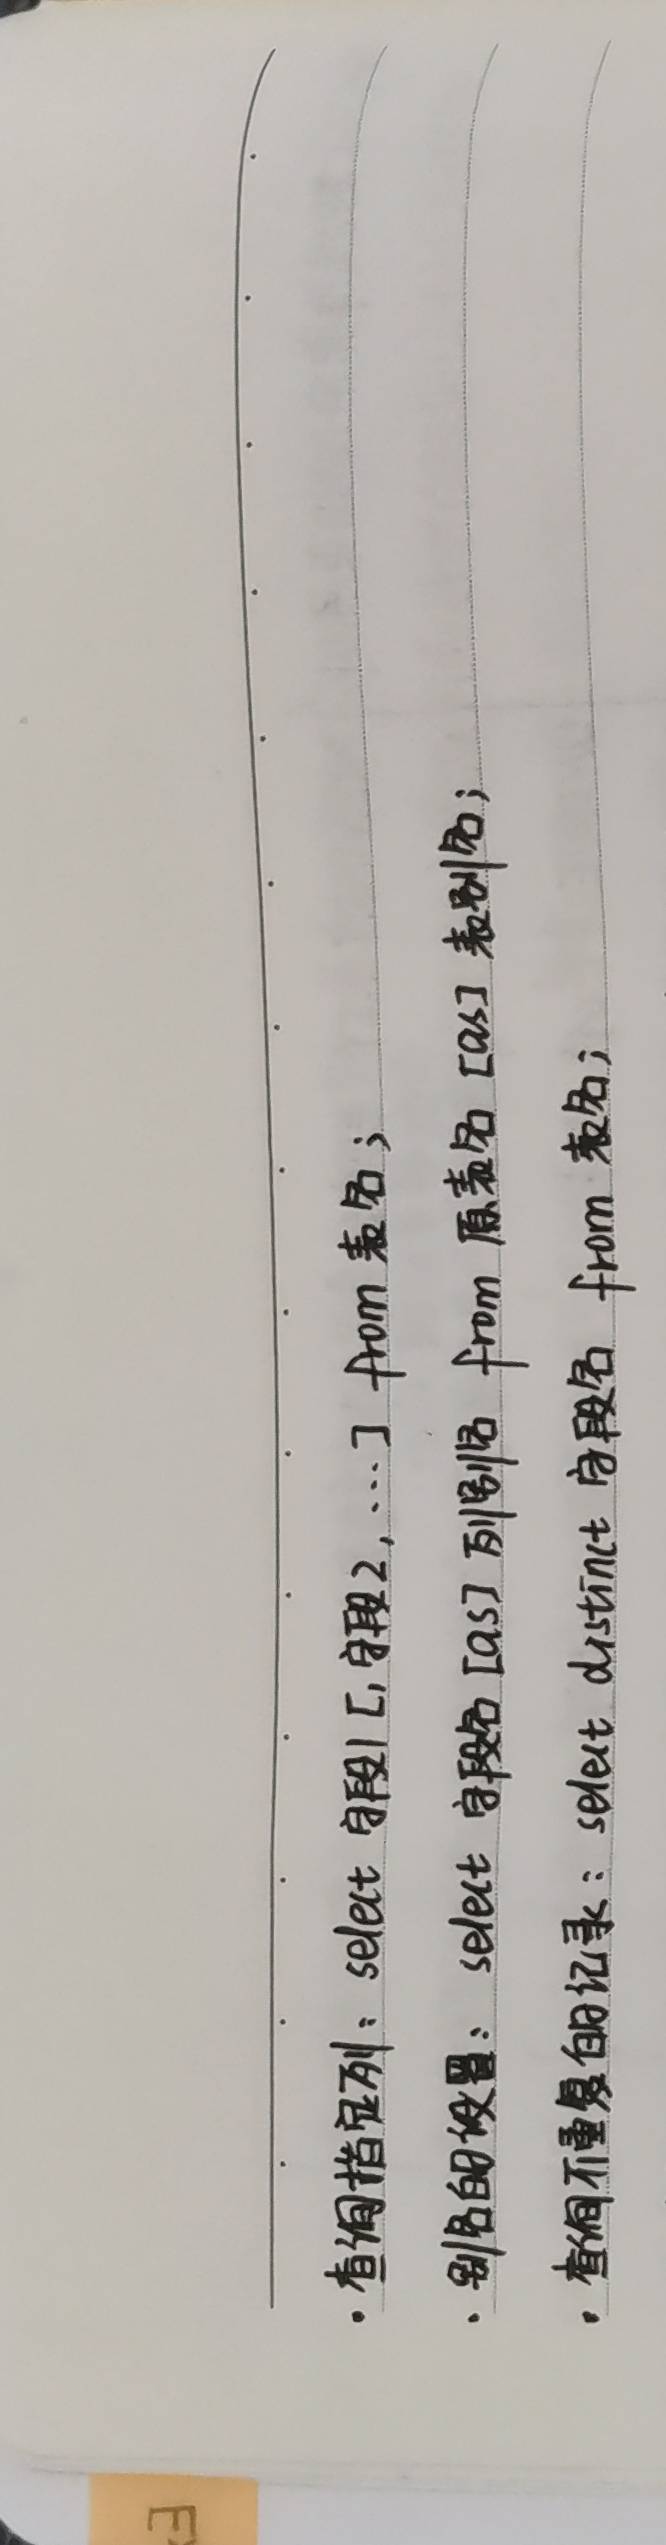 · 查询指定列：select 字段1 [,字段2, ...] from 表名;
· 别名的设置：select 字段名 [as] 列别名 from 原表名 [as] 表别名;
· 查询不重复的记录：select distinct 字段名 from 表名;